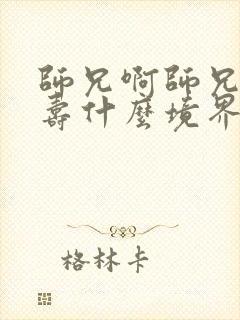 師兄啊師兄
壽什麼境界
格林卡